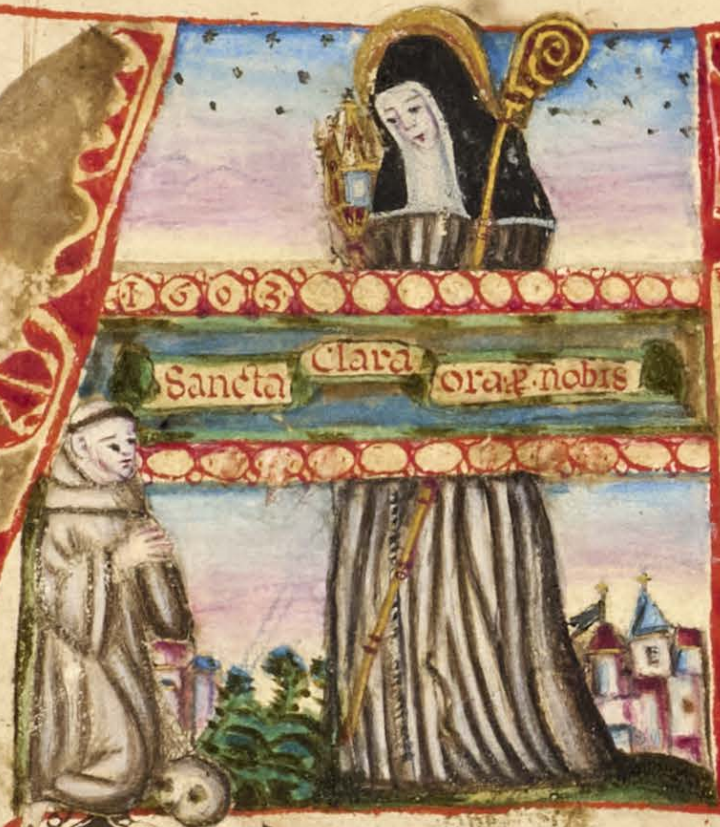 1603
Sancta Clara ora ꝓ nobis